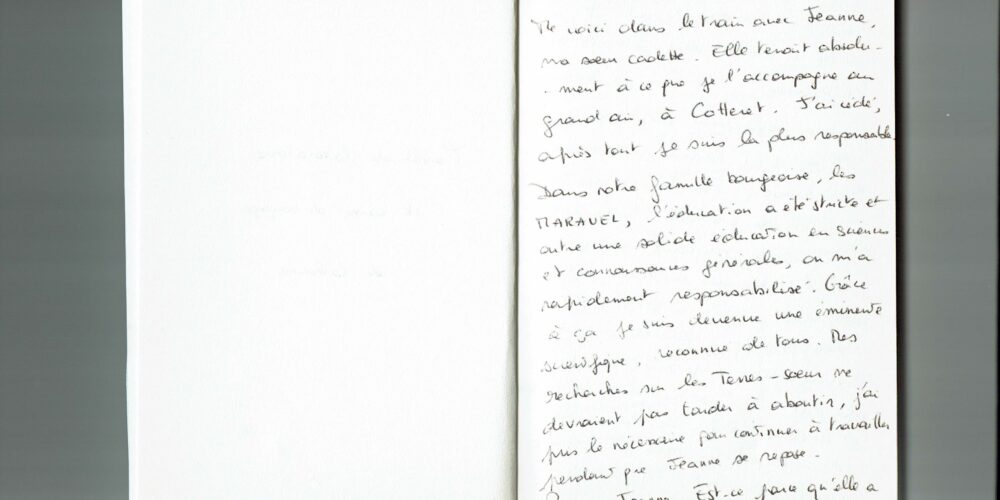 Me voici dans le train avec Jeanne,
ma soeur cadette. Elle tenait absolu-
-ment à ce que je l'accompagne au
grand air, à Cotteret. J'ai cédé,
après tout je suis la plus responsable.
Dans notre famille bourgeoise, les
MARAVEL, l'éducation a été stricte et
outre une solide éducation en sciences
et connaissances générales, on m'a
rapidement responsabilisé. Grâce
à ça je suis devenue une éminente
scientifique, reconnue de tous. Mes
recherches sur les Terres-soeur ne
devraient pas tarder à aboutir, j'ai
pris le nécessaire pour continuer à travailler
pendant que Jeanne se repose.
Jeanne. Est-ce parce qu'elle a